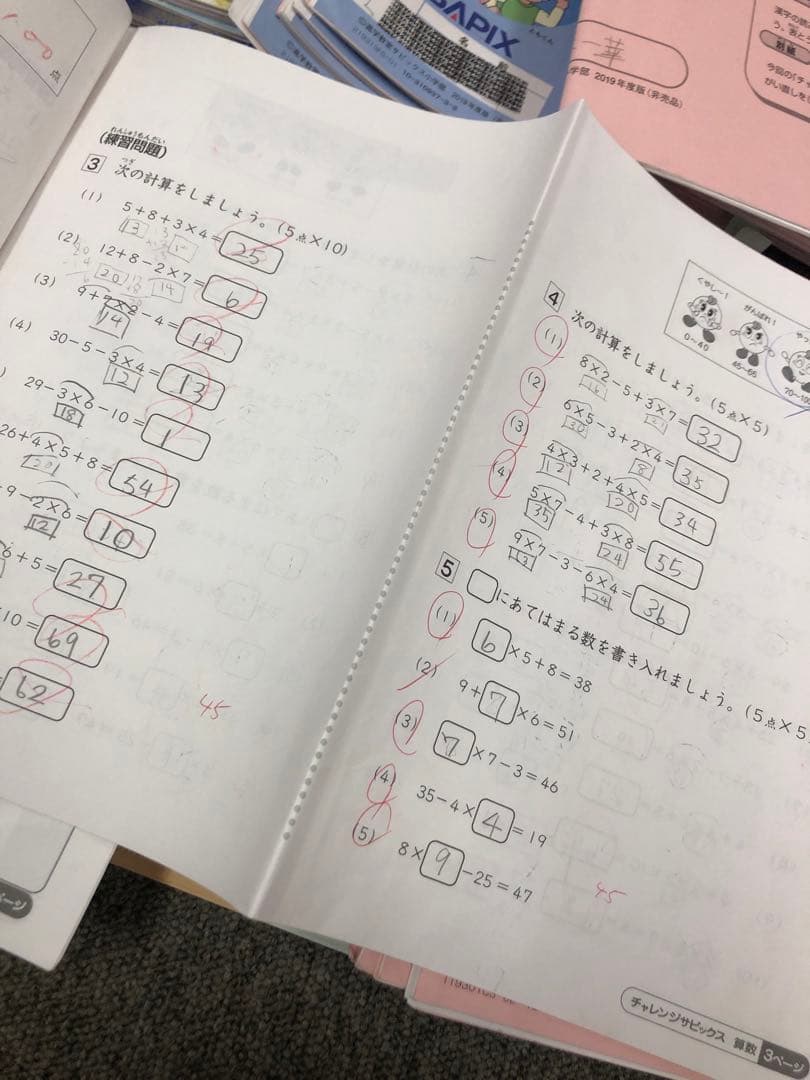 点
SAPIX
名
2019年度版
一華
学部 2019年度版(非売品)
れんしゅうもんだい
(練習問題)
3 次の計算をしましょう。(5点×10)
つぎ
(1) 5+8+3×4=25
13
(2) 12+8-2×7=6
20 14
(3) 9+7×2-4=19
14
(4) 30-5-3×4=13
12
29-3×6-10=1
18
26+4×5+8=54
20
9-2×6=10
12
6+5=27
10=69
=62
45
くやし〜! がんばれ!
0〜40 45〜65 70〜100
4 次の計算をしましょう。(5点×5)
(1) 8×2-5+3×7=32
16 21
(2) 6×5-3+2×4=35
30 8
(3) 4×3+2+4×5=34
12 20
(4) 5×7-4+3×8=55
35 24
(5) 9×7-3-6×4=36
24
5 □にあてはまる数を書き入れましょう。(5点×5
(1) 6×5+8=38
(2) 9+7×6=51
(3) 7×7-3=46
(4) 35-4×4=19
(5) 8×9-25=47
45
チャレンジサピックス 算数 3ページ
ページ